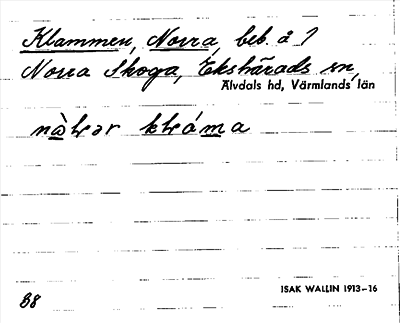 Klammen, Norra, beb. å 1
Norra Skoga, Ekshärads sn,
Älvdals hd, Värmlands län
ISAK WALLIN 1913–16
38